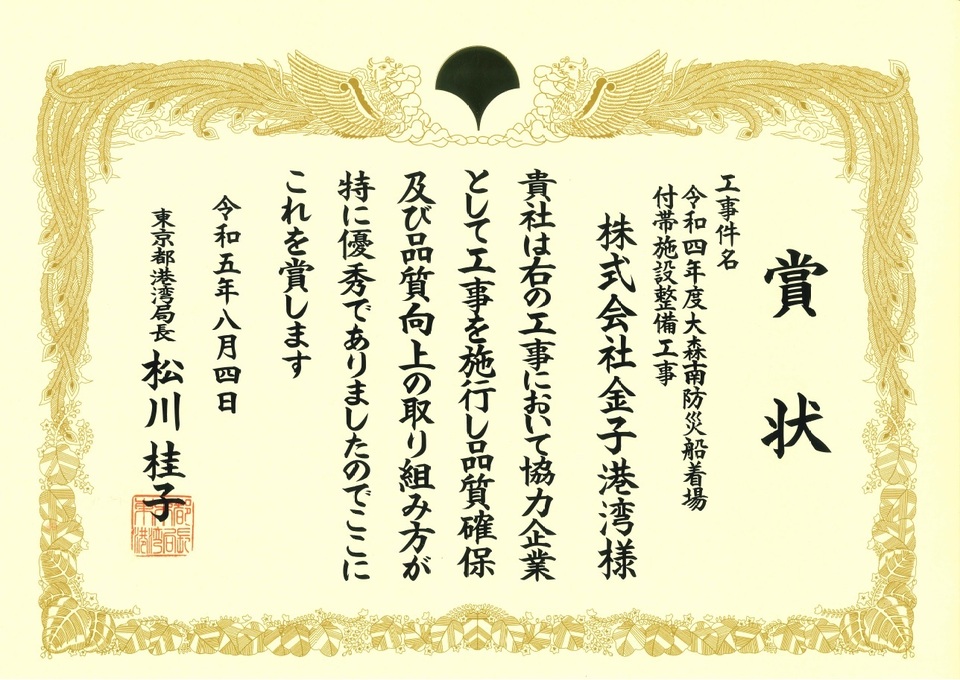 賞状
工事件名
令和四年度大森南防災船着場
付帯施設整備工事
株式会社金子港湾様
貴社は右の工事において協力企業
として工事を施行し品質確保
及び品質向上の取り組み方が
特に優秀でありましたのでここに
これを賞します
令和五年八月四日
東京都港湾局長 松川桂子